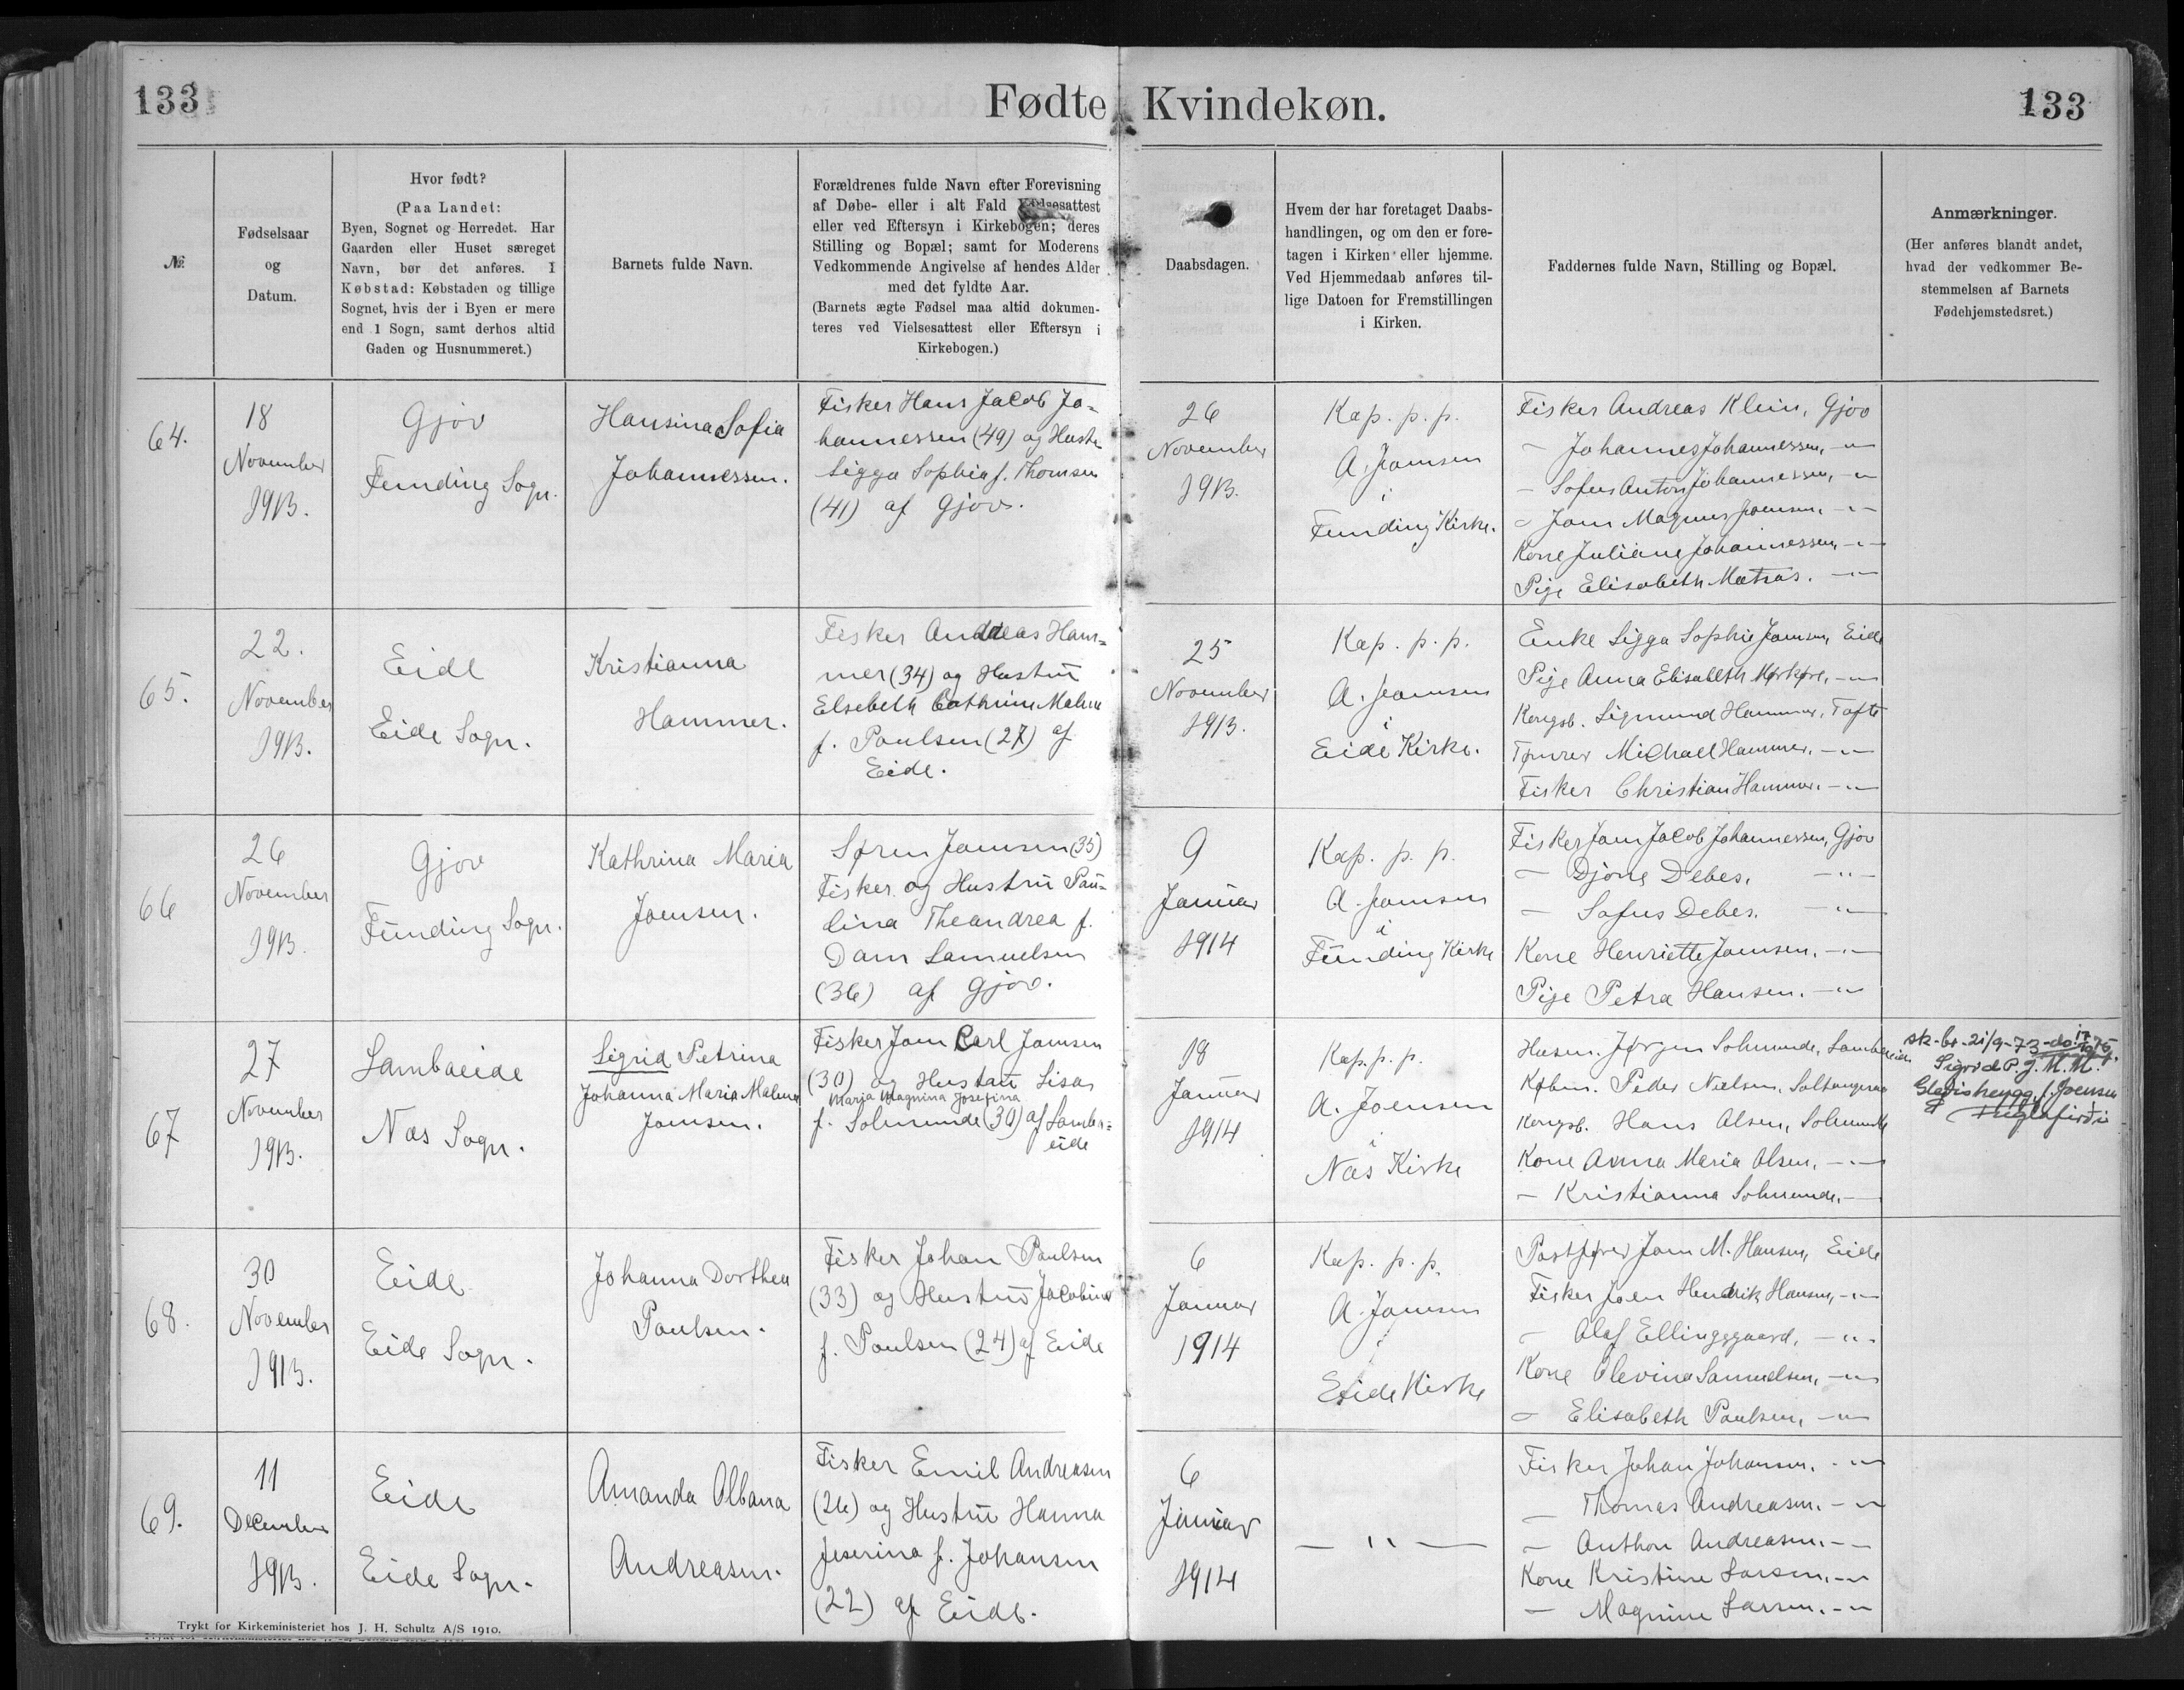 133
Fødte Kvindekøn.
133
№
Fødselsaar
og
Datum.
Hvor født?
(Paa Landet:
Byen, Sognet og Herredet. Har
Gaarden eller Huset særeget
Navn, bør det anføres. I
Købstad: Købstaden og tillige
Sognet, hvis der i Byen er mere
end 1 Sogn, samt derhos altid
Gaden og Husnummeret.)
Barnets fulde Navn.
Forældrenes fulde Navn efter Forevisning
af Døbe- eller i alt Fald Fødselsattest
eller ved Eftersyn i Kirkebogen; deres
Stilling og Bopæl; samt for Moderens
Vedkommende Angivelse af hendes Alder
med det fyldte Aar.
(Barnets ægte Fødsel maa altid dokumen-
teres ved Vielsesattest eller Eftersyn i
Kirkebogen.)
Daabsdagen.
Hvem der har foretaget Daabs-
handlingen, og om den er fore-
tagen i Kirken eller hjemme.
Ved Hjemmedaab anføres til-
lige Datoen for Fremstillingen
i Kirken.
Faddernes fulde Navn, Stilling og Bopæl.
Anmærkninger.
(Her anføres blandt andet,
hvad der vedkommer Be-
stemmelsen af Barnets
Fødehjemstedsret.)
64.
18
November
1913.
Gjov
Funding Sogn.
Hansina Sofia
Johannessen.
Fisker Hans Jacob Jo-
hannessen (49) og Hustr
Sigga Sophia f. Thomsen
(41) af Gjov.
26
November
1913.
Kap. p. p.
A. Joensen
i
Funding Kirke.
Fisker Andreas Klein, Gjov
- Johannes Johannessen, -"-
- Sofus Anton Johannessen, -"-
- Joen Magnus Joensen, -"-
Kone Juliane Johannessen, -"-
Pige Elisabeth Matras. -"-
65.
22.
November
1913.
Eide
Eide Sogn.
Kristianna
Hammer.
Fisker Andreas Ham-
mer (34) og Hustrū
Elsebeth Cathrine Malene
f. Poulsen (27) af
Eide.
25
November
1913.
Kap. p. p.
A. Joensen
i
Eide Kirke.
Enke Sigga Sophie Joensen, Eide
Pige Anna Elisabeth Mørkøre, -"-
Kongsb. Sigmund Hammer, Tofte
Tømrer Michael Hammer. -"-
Fisker Christian Hammer. -"-
66
26
November
1913.
Gjov
Fūnding Sogn.
Kathrina Maria
Joensen.
Søren Joensen (35)
Fisker og Hustrū Pau-
lina Theandrea f.
Dam Samuelsen
(36) af Gjov.
9
Janūar
1914
Kap. p. p.
A. Joensen
i
Fūnding Kirke
Fisker Joen Jacob Johannessen, Gjov
- Djone Debes, -"-
- Sofus Debes. -"-
Kone Henriette Joensen. -"-
Pige Petra Hansen. -"-
67
27
November
1913.
Lambaeide
Næs Sogn.
Sigrid Petrina
Johanna Maria Malena
Joensen.
Fisker Joen Carl Joensen
(30) og Hustrū Lisa
Maria Magnina Josefina
f. Solmunde (30) af Lamba-
eide
18
Janūar
1914
Kap. p. p.
A. Joensen
i
Næs Kirke
Husm. Jørgen Solmunde, Lambaeide
Købm. Peder Nielsen, Saltangeraa
Kongsb. Hans Olsen, Solmunde
Kone Anna Maria Olsen, -"-
- Kristianna Solmunde. -
sk-br-21/9-73
Sigrid P. J. M. M.
f. Joensen
Fuglafirði
68.
30
November
1913.
Eide
Eide Sogn.
Johanna Dorthea
Poulsen.
Fisker Johan Poulsen
(33) og Hustrū Jacobine
f. Poulsen (24) af Eide
6
Januar
1914
Kap. p. p.
A. Joensen
i
Eide Kirke
Postfører Joen M. Hansen, Eide
Fisker Joen Hendrik Hansen, -"-
- Olaf Ellingsgaard, -"-
Kone Olevina Samuelsen, -"-
- Elisabeth Poulsen, -"-
69.
11
December
1913.
Eide
Eide Sogn.
Amanda Albana
Andreasen.
Fisker Emil Andreasen
(26) og Hustrū Hanna
Jeserina f. Johansen
(22) af Eide.
6
Janūar
1914
- " -
Fisker Johan Johansen. -"-
- Thomas Andreasen. -"-
- Anthon Andreasen. - -
Kone Kristine Larsen. -"-
- Magnine Larsen. -"-
Trykt for Kirkeministeriet hos J. H. Schultz A/S 1910.